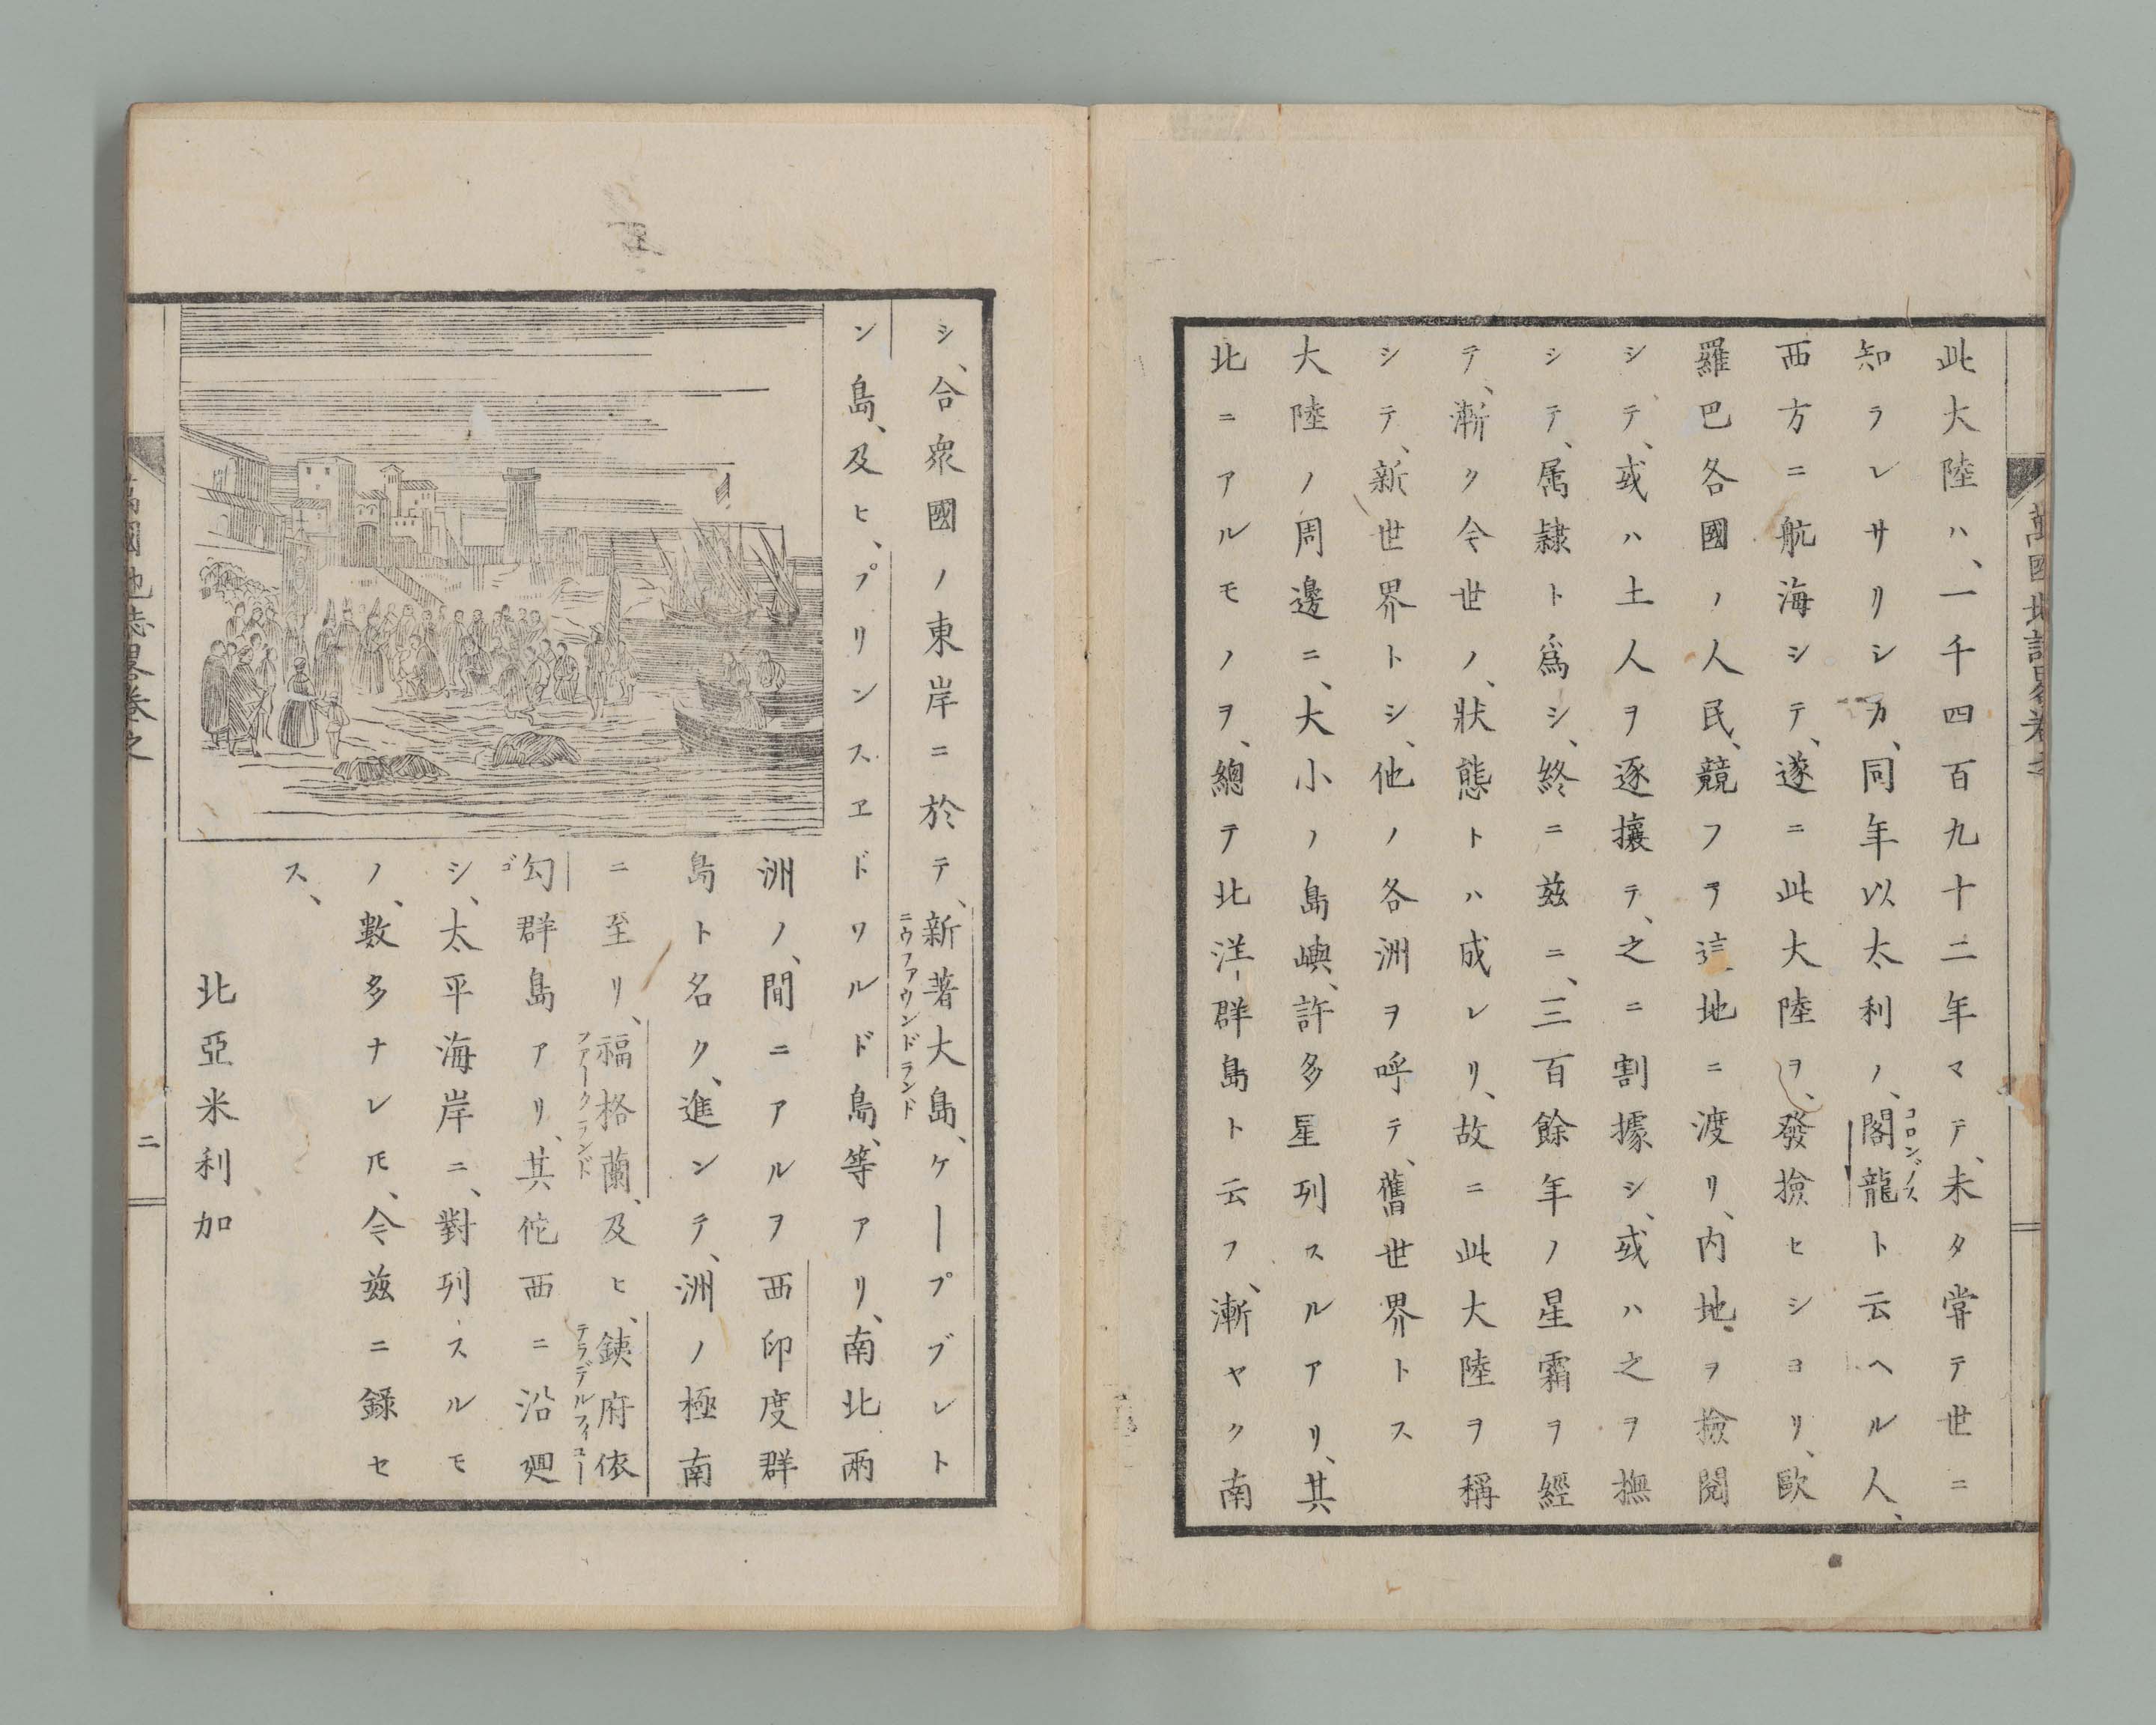 此大陸ハ、一千四百九十二年マテ、未タ甞テ世ニ
知ラレサリシカ、同年以太利ノ、閣龍ト云ヘル人、
コロンブス
西方ニ航海シテ、遂ニ此大陸ヲ、發撿ヒシヨリ、歐
羅巴各國ノ人民、競フテ這地ニ渡リ、内地ヲ撿閲
シテ、或ハ土人ヲ逐攘テ、之ニ割據シ、或ハ之ヲ撫
シテ、属隷ト爲シ、終ニ兹ニ、三百餘年ノ星霜ヲ經
テ、漸ク今世ノ、狀態トハ成レリ、故ニ此大陸ヲ稱
シテ、新世界トシ、他ノ各洲ヲ呼テ、舊世界トス
大陸ノ周邊ニ、大小ノ島嶼、許多星列スルアリ、其
北ニアルモノヲ、總テ北洋群島ト云フ、漸ヤク南
シ、合衆國ノ東岸ニ於テ、新著大島、ケープブレト
ニウファウンドランド
ン島、及ヒ、プリンスエドワルド島、等アリ、南北兩
洲ノ、間ニアルヲ西印度群
島ト名ク、進ンテ、洲ノ極南
ニ至リ、福格蘭、及ヒ、銕府依
ファークランド
テラデルフィユー
勾群島アリ、其佗西ニ沿廻
ゴ
シ、太平海岸ニ、對列スルモ
ノ、數多ナレ𪜈、今兹ニ録セ
ス、
北亞米利加
萬國地誌畧卷之
二